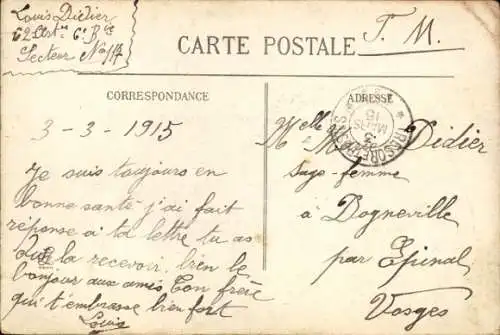 Louis Didier
62 Bt. 6e Bie
Secteur No 114
CARTE POSTALE
F. M.
CORRESPONDANCE
ADRESSE
TRESOR ET POSTES
3
MARS
15
3-3-1915
Je suis toujours en
bonne santé j'ai fait
réponse à ta lettre tu as
du la recevoir. bien le
bonjour aux amis Ton frère
qui t'embrasse bien fort
Louis
Melle M Didier
sage-femme
à Dogneville
par Epinal
Vosges